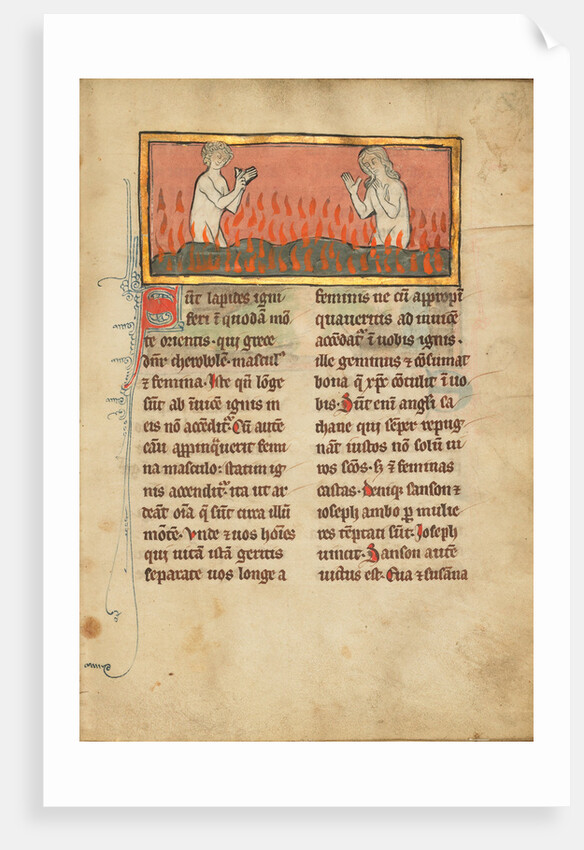 Sūt lapides igni
feri ī quodā mō
te orientis · qui grece
dn̄r cherobolē · mascul⁹
⁊ femina · Iste qn̄ lōge
sūt ab īuicē ignis in
eis nō accēdit᷑ · Cū autē
casu appinq̄uerit femi
na masculo : statim ig
nis accendit᷑ · ita ut ar
deāt oīa q̄ sūt circa illū
mōtē · Vnde ⁊ uos hōīes
qui uitā istā geritis
separate uos longe a
feminis ne cū appropīꝰ
quaueritis ad īuicē
accēdat᷑ ī uobis ignis ·
ille geminus ⁊ cōsumat
bona q̄ xp̄c cōtulit ī uo
bis · Sūt enī angl̄i sa
thane qui sēper repug
nāt iustos nō solū ui
ros scōs · ſ; ⁊ feminas
castas · Deniq; sanson ⁊
ioseph ambo ꝑ mulie
res tēptati sūt · Ioseph
uincit · Sanson autē
uictus est · Eua ⁊ susāna